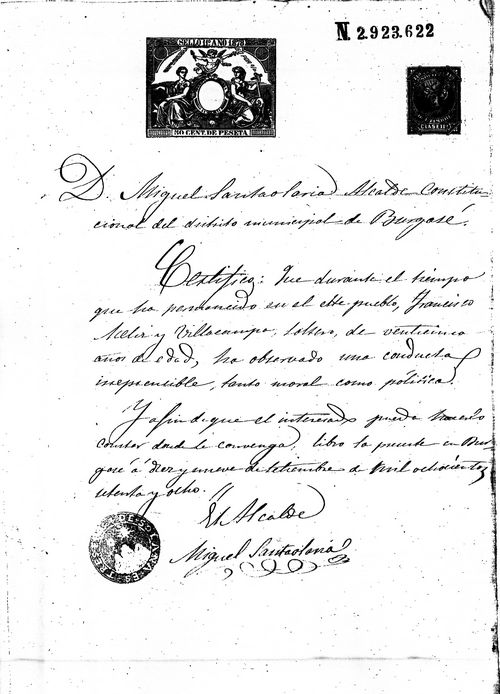 N 2.923.622
SELLO 11º AÑO 1878
50 CENT. DE PESETA
D. Miguel Santaolaria Alcalde Constitu-
cional del distrito municipal de Burgasé.
Certifico: Que durante el tiempo
que ha permanecido en el este pueblo, Francisco
Melir y Villacampa, soltero, de venticinco
años de edad, ha observado una conducta
irrepensible, tanto moral como política.
Y a fin de que el interesado pueda hacerlo
constar donde le convenga, libro la presente en Bur-
gasé a diez y nueve de Setiembre de mil ochocientos
setenta y ocho.
El Alcalde
Miguel Santaolaria